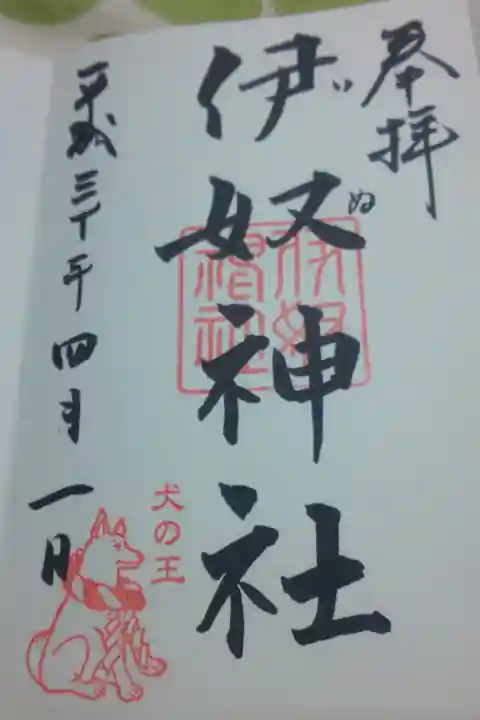 奉拝
伊奴神社
い
ぬ
伊奴
神社
平成三十年四月一日
犬の王